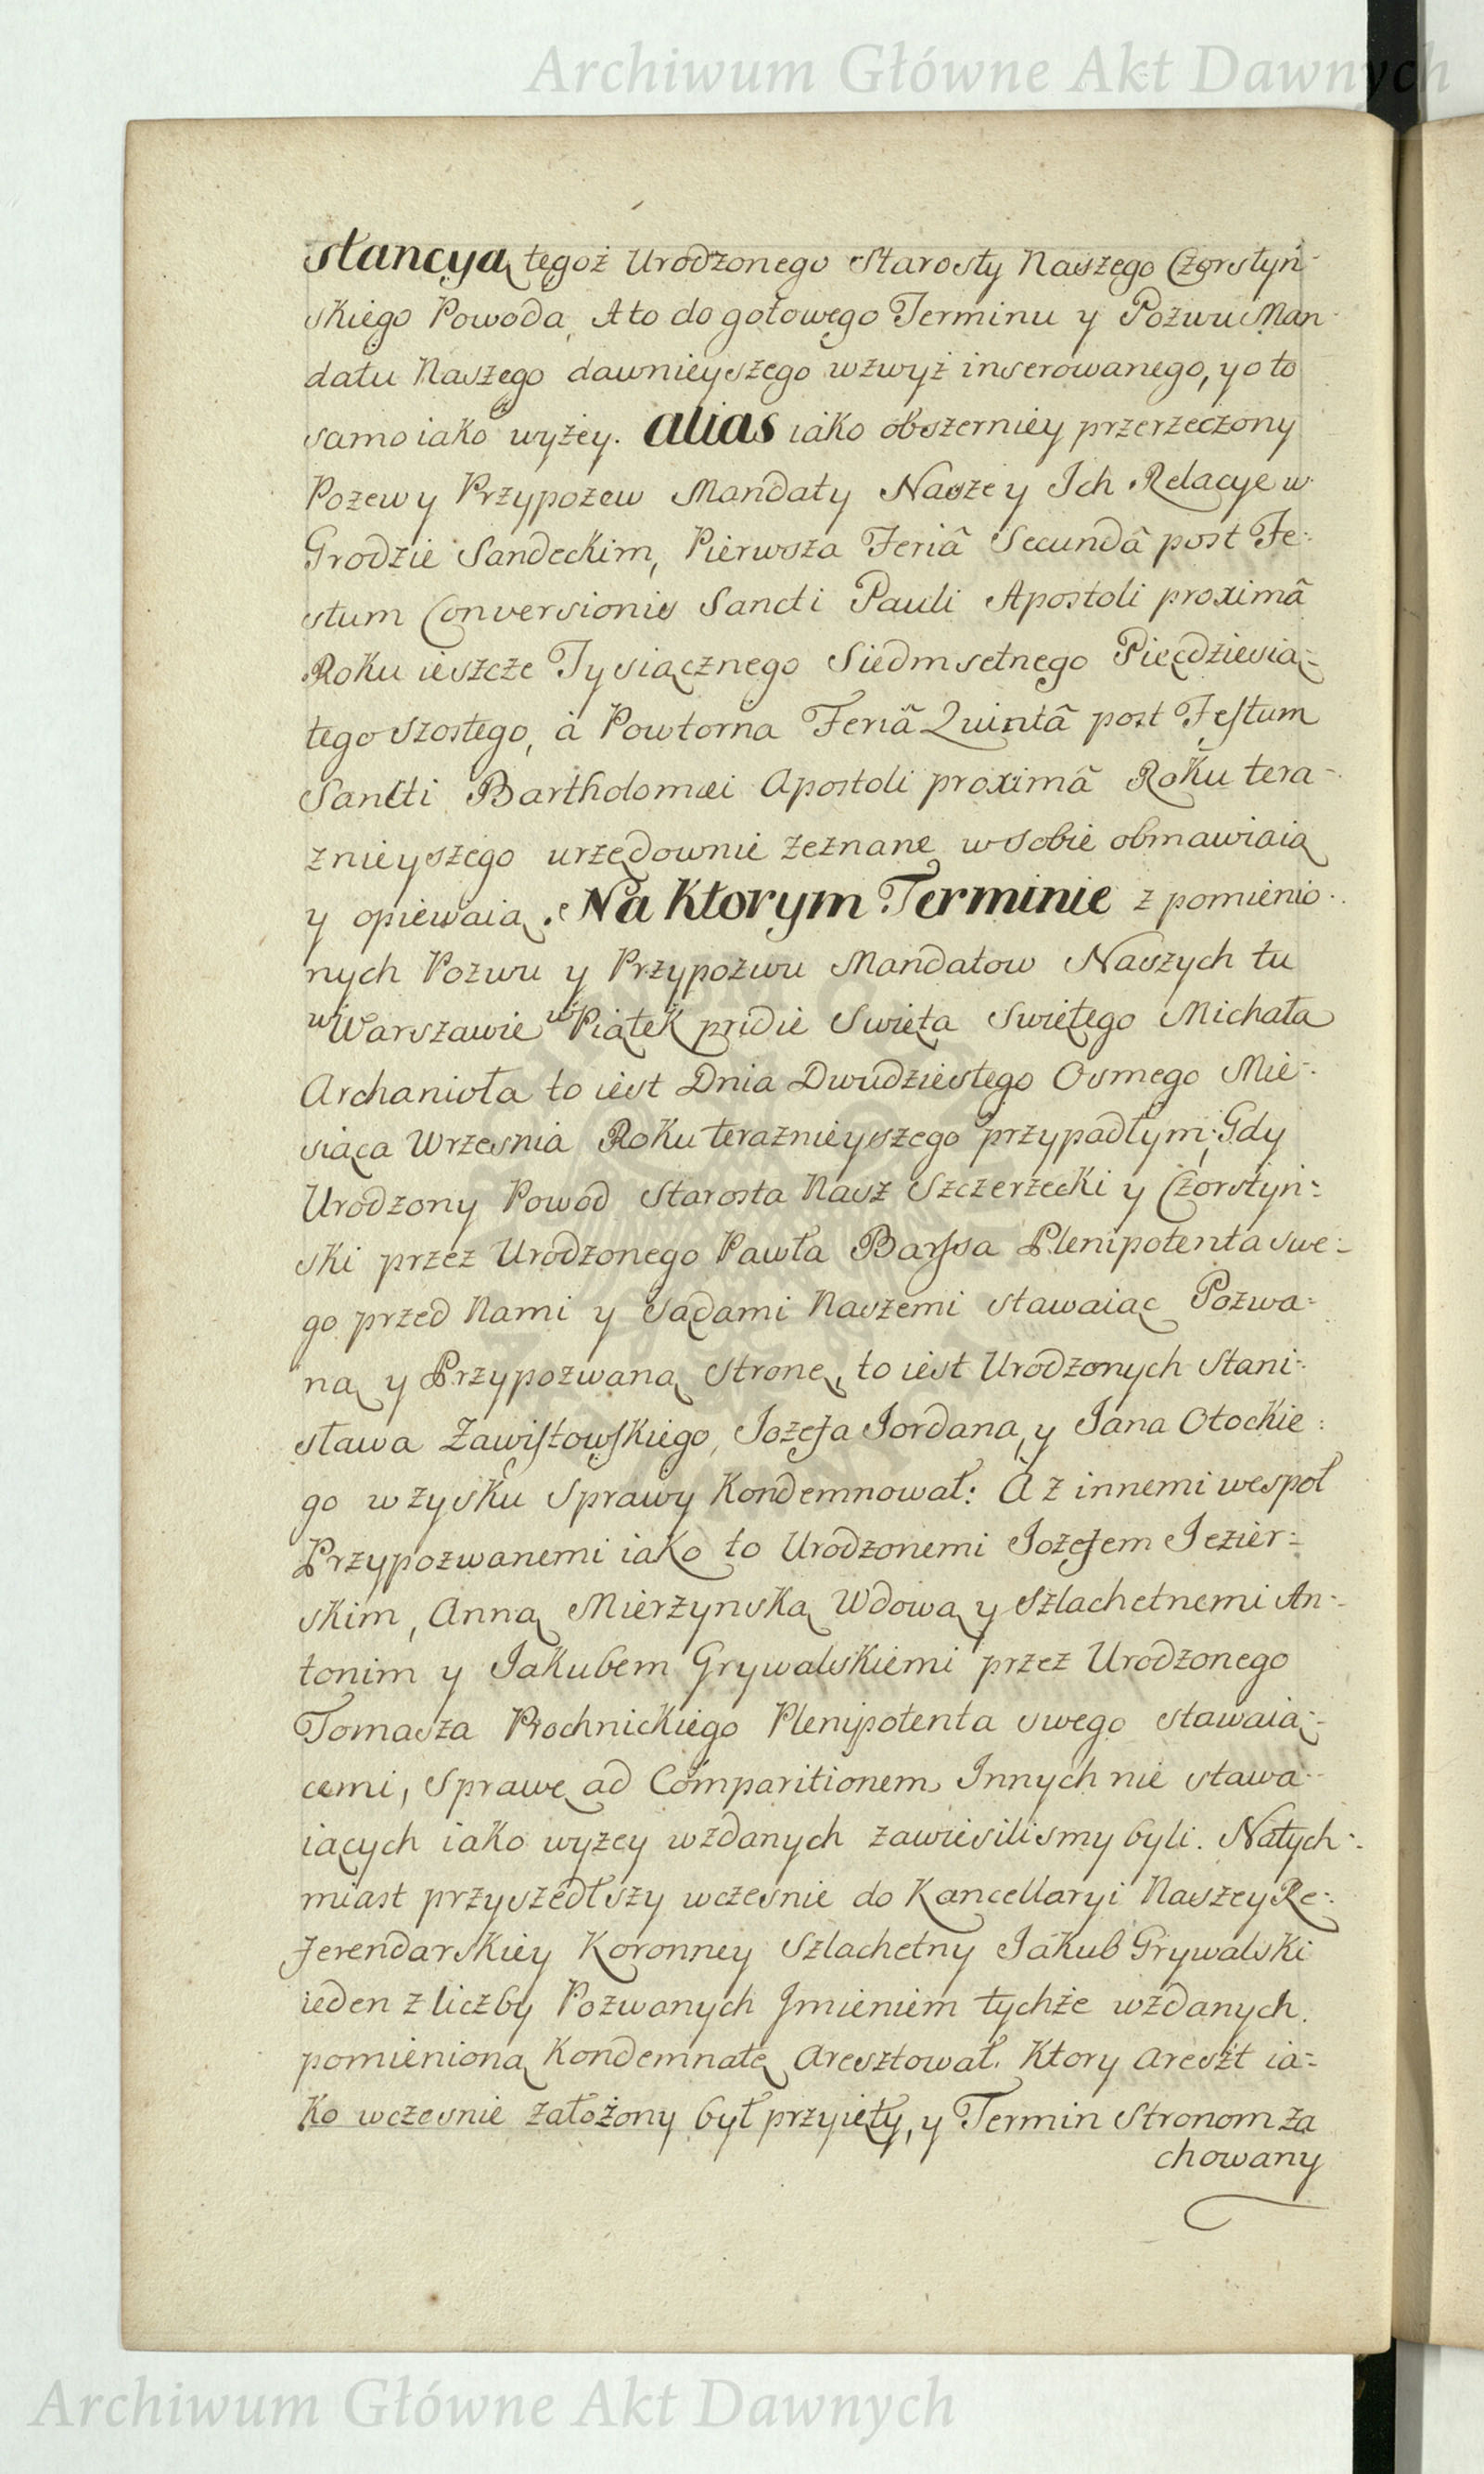 Archiwum Główne Akt Dawnych
stancyą tegoż Urodzonego Starosty Naszego Czorstyń-
skiego Powoda, A to do gotowego Terminu y Pozwu Man-
datu Naszego dawnieyszego wzwyż inserowanego, y o to
samo iako wyżey. alias iako obszerniey przerzeczony
Pozew y Przypozew Mandaty Nasze y Ich Relacye w
Grodzie Sandeckim, Pierwsza Feriâ Secundâ post Fe-
stum Conversionis Sancti Pauli Apostoli proximâ
Roku ieszcze Tysiącznego Siedmsetnego Pięcdziesią-
tego Szostego, à Powtorna Feriâ Quintâ post Festum
Sancti Bartholomæi Apostoli proximâ Roku tera-
znieyszego urzędownie zeznane w sobie obmawiaią
y opiewaią. Na Ktorym Terminie z pomienio-
nych Pozwu y Przypozwu Mandatow Naszych tu
w Warszawie w Piątek pridie Swięta Swiętego Michała
Archanioła to iest Dnia Dwudziestego Osmego Mie-
siąca Wrzesnia Roku teraznieyszego przypadłym; Gdy
Urodzony Powod Starosta Nasz Szczerzecki y Czorstyn-
ski przez Urodzonego Pawła Barssa Plenipotenta swe-
go przed Nami y Sądami Naszemi stawaiąc Pozwa-
ną y Przypozwaną Stronę, to iest Urodzonych Stani-
sława Zawistowskiego, Iozefa Iordana, y Iana Otockie-
go w zysku Sprawy Kondemnował: A z innemi wespoł
Przypozwanemi iako to Urodzonemi Iozefem Iezier-
skim, Anną Mierzynską Wdową y Szlachetnemi An-
tonim y Iakubem Grywalskiemi przez Urodzonego
Tomasza Prochnickiego Plenipotenta swego stawaią-
cemi, Sprawę ad Comparitionem Innych nie stawa-
iących iako wyżey wzdanych zawiesilismy byli. Natych-
miast przyszedłszy wczesnie do Kancellaryi Naszey Re-
ferendarskiey Koronney Szlachetny Iakub Grywalski
ieden z liczby Pozwanych Imieniem tychże wzdanych
pomienioną Kondemnatę Aresztował. Ktory Areszt ia-
ko wczesnie założony był przyięty, y Termin Stronom za
chowany
Archiwum Główne Akt Dawnych